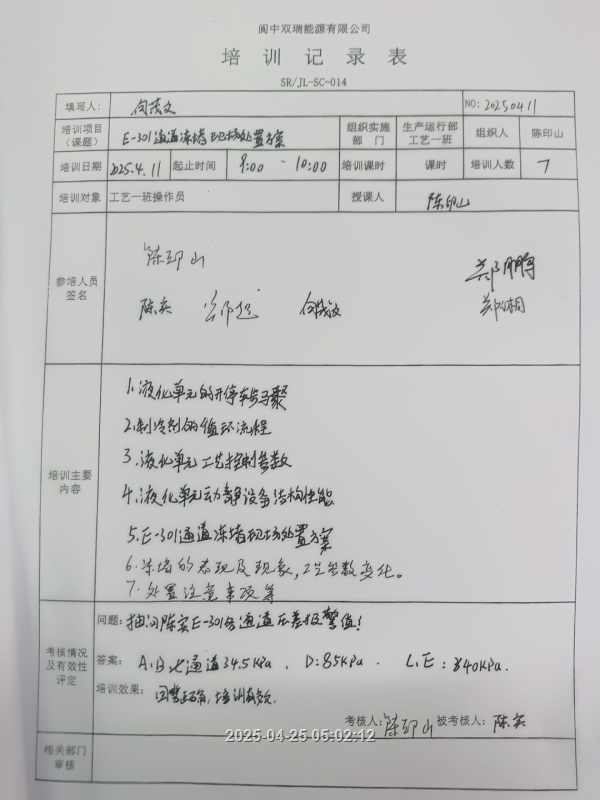 阆中双瑞能源有限公司
培训记录表
SR/JL-SC-014
填写人： NO: 20250411
培训项目（课题） E-301通道冻堵现场处置方案 组织实施部门 生产运行部工艺一班 组织人 陈印山
培训日期 2025.4.11 起止时间 9:00 ~ 10:00 培训课时 课时 培训人数 7
培训对象 工艺一班操作员 授课人 陈印山
参培人员签名
陈印山 郑鹏
陈实 郑超 郑湘
培训主要内容
1.液化单元的开停车步骤
2.制冷剂的循环流程
3.液化单元工艺控制参数
4.液化单元动静设备结构性能
5.E-301通道冻堵现场处置方案
6.冻堵的表现及现象,工艺参数变化。
7.处置注意事项等
考核情况及有效性评定
问题： 抽问陈实E-301各通道压差报警值!
答案： A.B.C通道34.5KPa . D:85KPa . E:340KPa.
培训效果： 回答正确,培训有效.
考核人：陈印山 被考核人：陈实
相关部门审核
2025-04-25 05:02:12